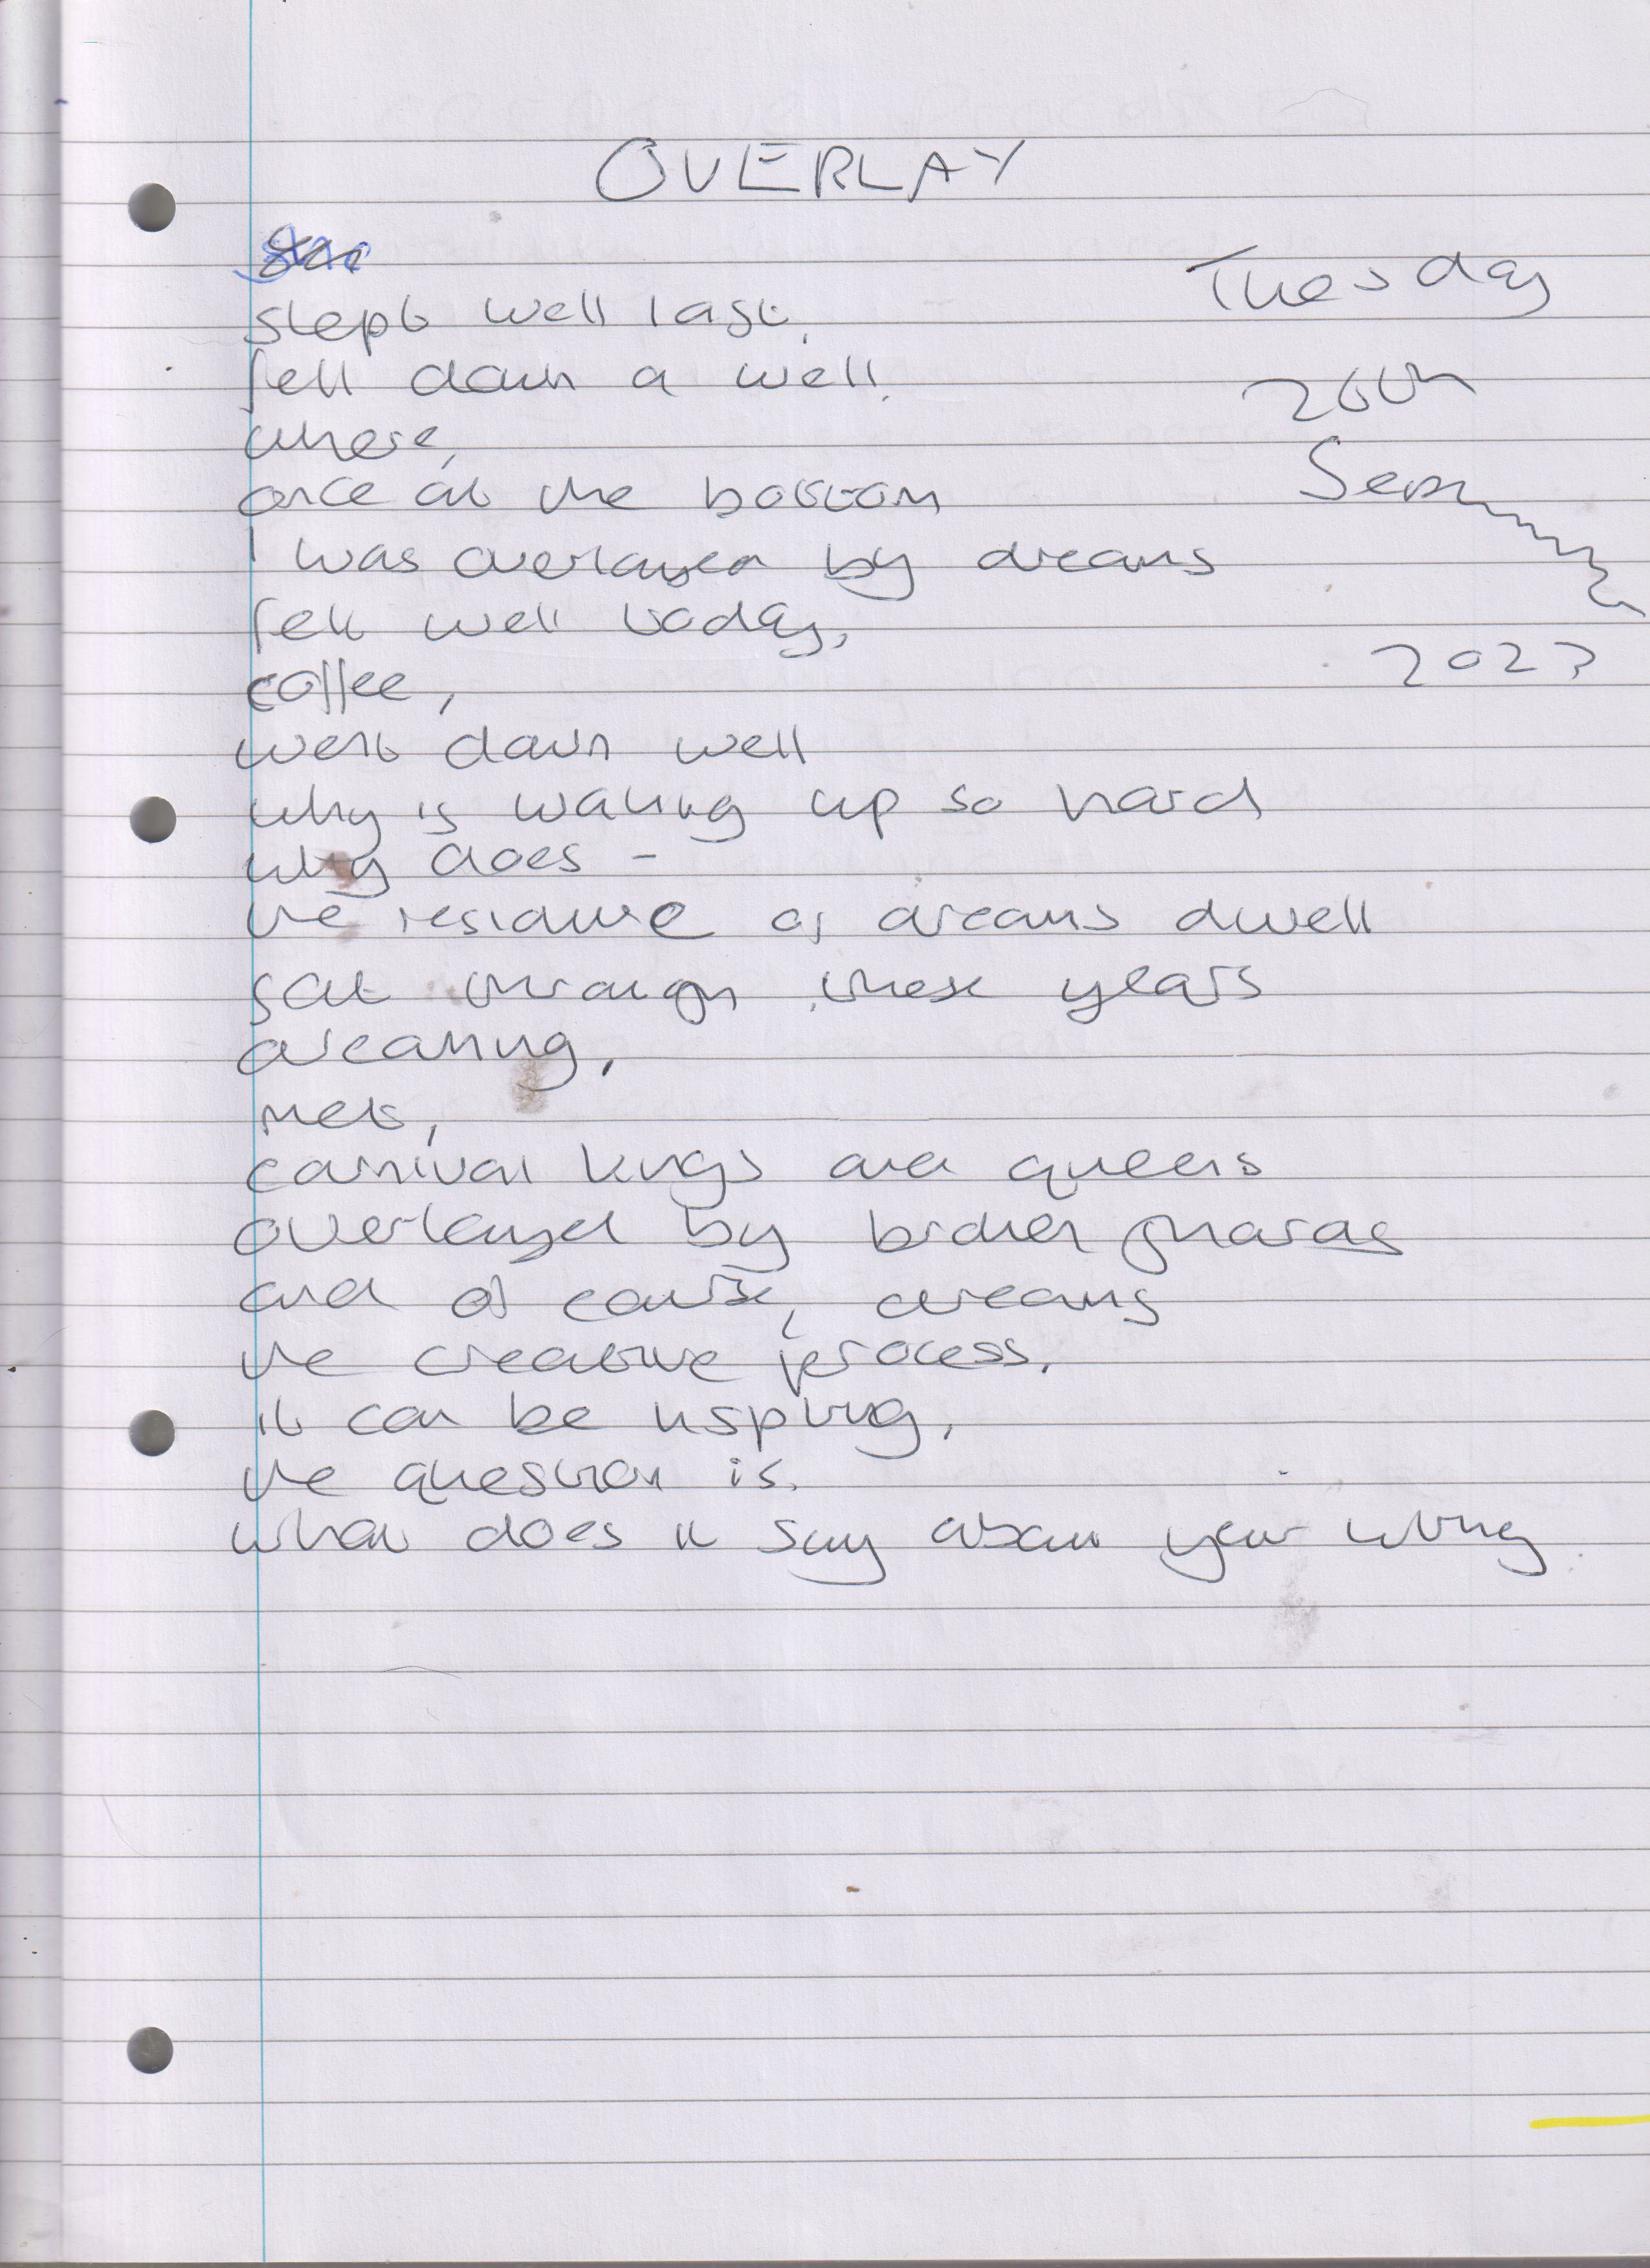 OVERLAY
Tuesday
slept well last,
26th
fell down a well.
where,
Sep
once at the bottom
I was overlayed by dreams
felt well today,
2023
coffee,
went down well
why is waking up so hard
why does -
the residue of dreams dwell
sat through these years
dreaming,
met,
carnival kings and queens
overlayed by broken
and of course, dreams
the creative process.
it can be inspiring,
the question is.
what does it say about your writing